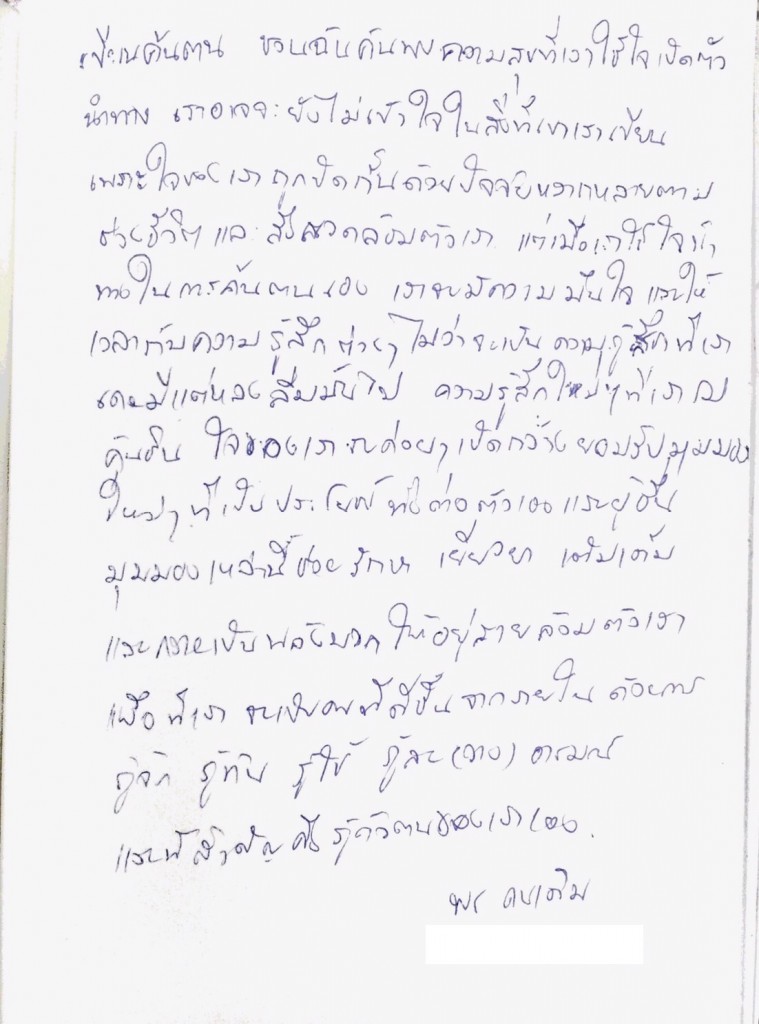 เขียนค้นตน ชวนฉันค้นพบความสุขที่เราใช้ใจเปิดตัว
นำทาง เราอาจจะยังไม่เข้าใจในสิ่งที่เราเขียน
เพราะใจของเราถูกปิดกั้นด้วยปัจจัยหลากหลายตาม
ช่วงชีวิต และ สิ่งแวดล้อมตัวเรา แต่เมื่อเราใช้ใจนำ
ทางในการค้นตนเอง เราจะมีความมั่นใจ และให้
เวลากับความรู้สึกต่างๆ ไม่ว่าจะเป็น ความรู้สึกที่เรา
เคยมีแต่หลงลืมมันไป ความรู้สึกใหม่ๆที่เราไม่
คุ้นชิน ใจของเราจะค่อยๆเปิดกว้างยอมรับมุมมอง
ใหม่ๆ ที่เป็นประโยชน์ทั้งต่อตัวเองและผู้อื่น
มุมมองเหล่านี้ช่วยรักษา เยียวยา เติมเต็ม
และกลายเป็นพลังบวก ให้อยู่รายล้อมตัวเรา
เพื่อที่เราจะเป็นคนที่ดีขึ้นจากภายใน ด้วยการ
รู้จัก รู้ทัน รู้ใช้ รู้ละ(วาง) อารมณ์
และที่สำคัญคือรู้ตัวตนของเราเอง.
พร คนเดิม